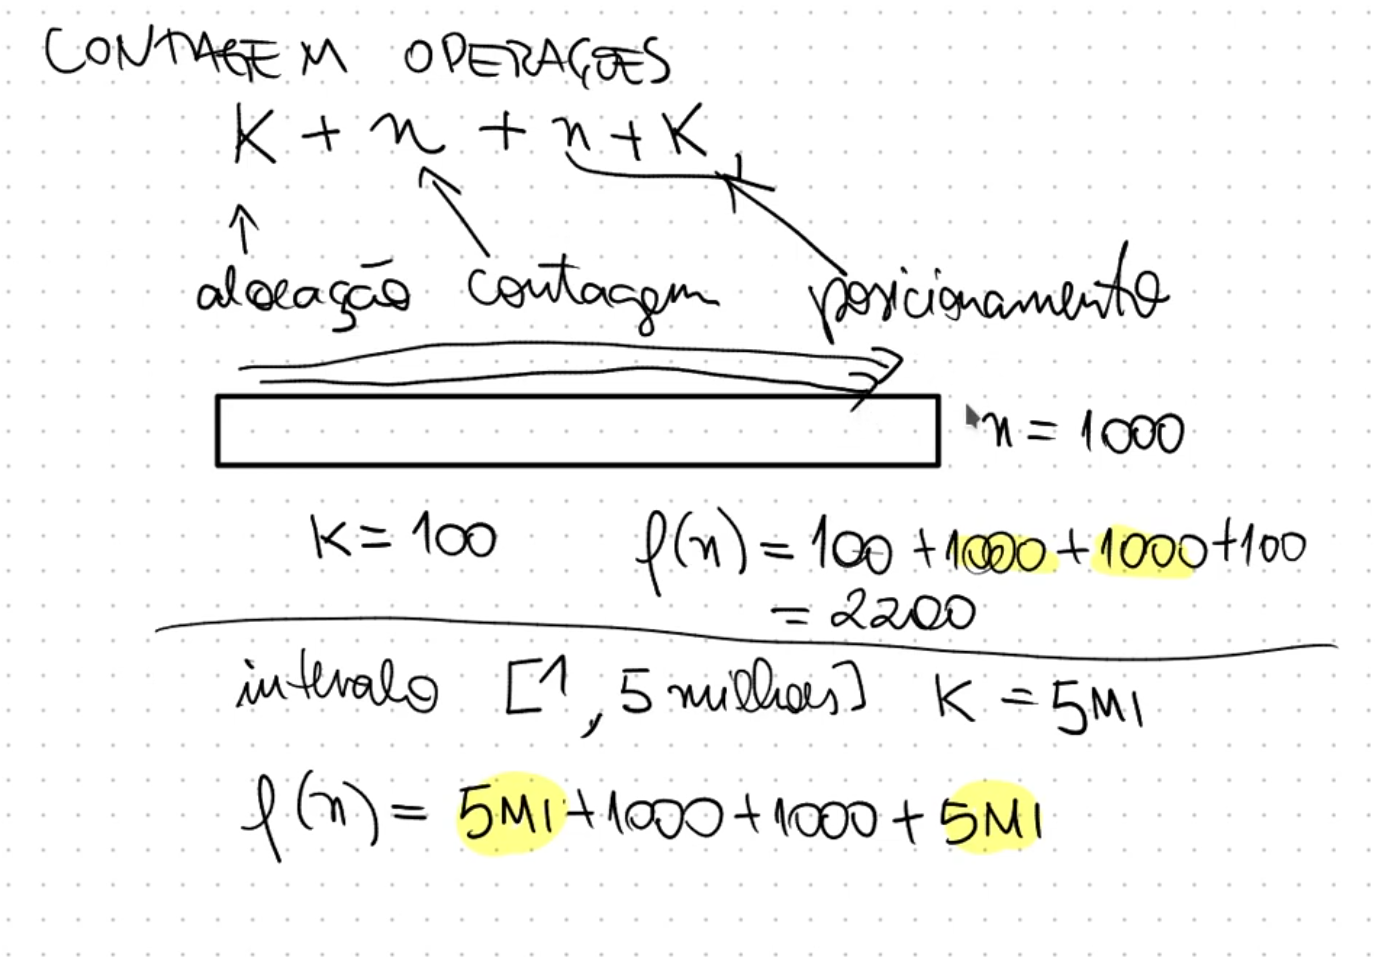 CONTAGEM OPERAÇÕES
K + n + n + K
alocação contagem posicionamento
n = 1000
K = 100 f(n) = 100 + 1000 + 1000 + 100
= 2200
intervalo [1, 5 milhões] K = 5MI
f(n) = 5MI + 1000 + 1000 + 5MI